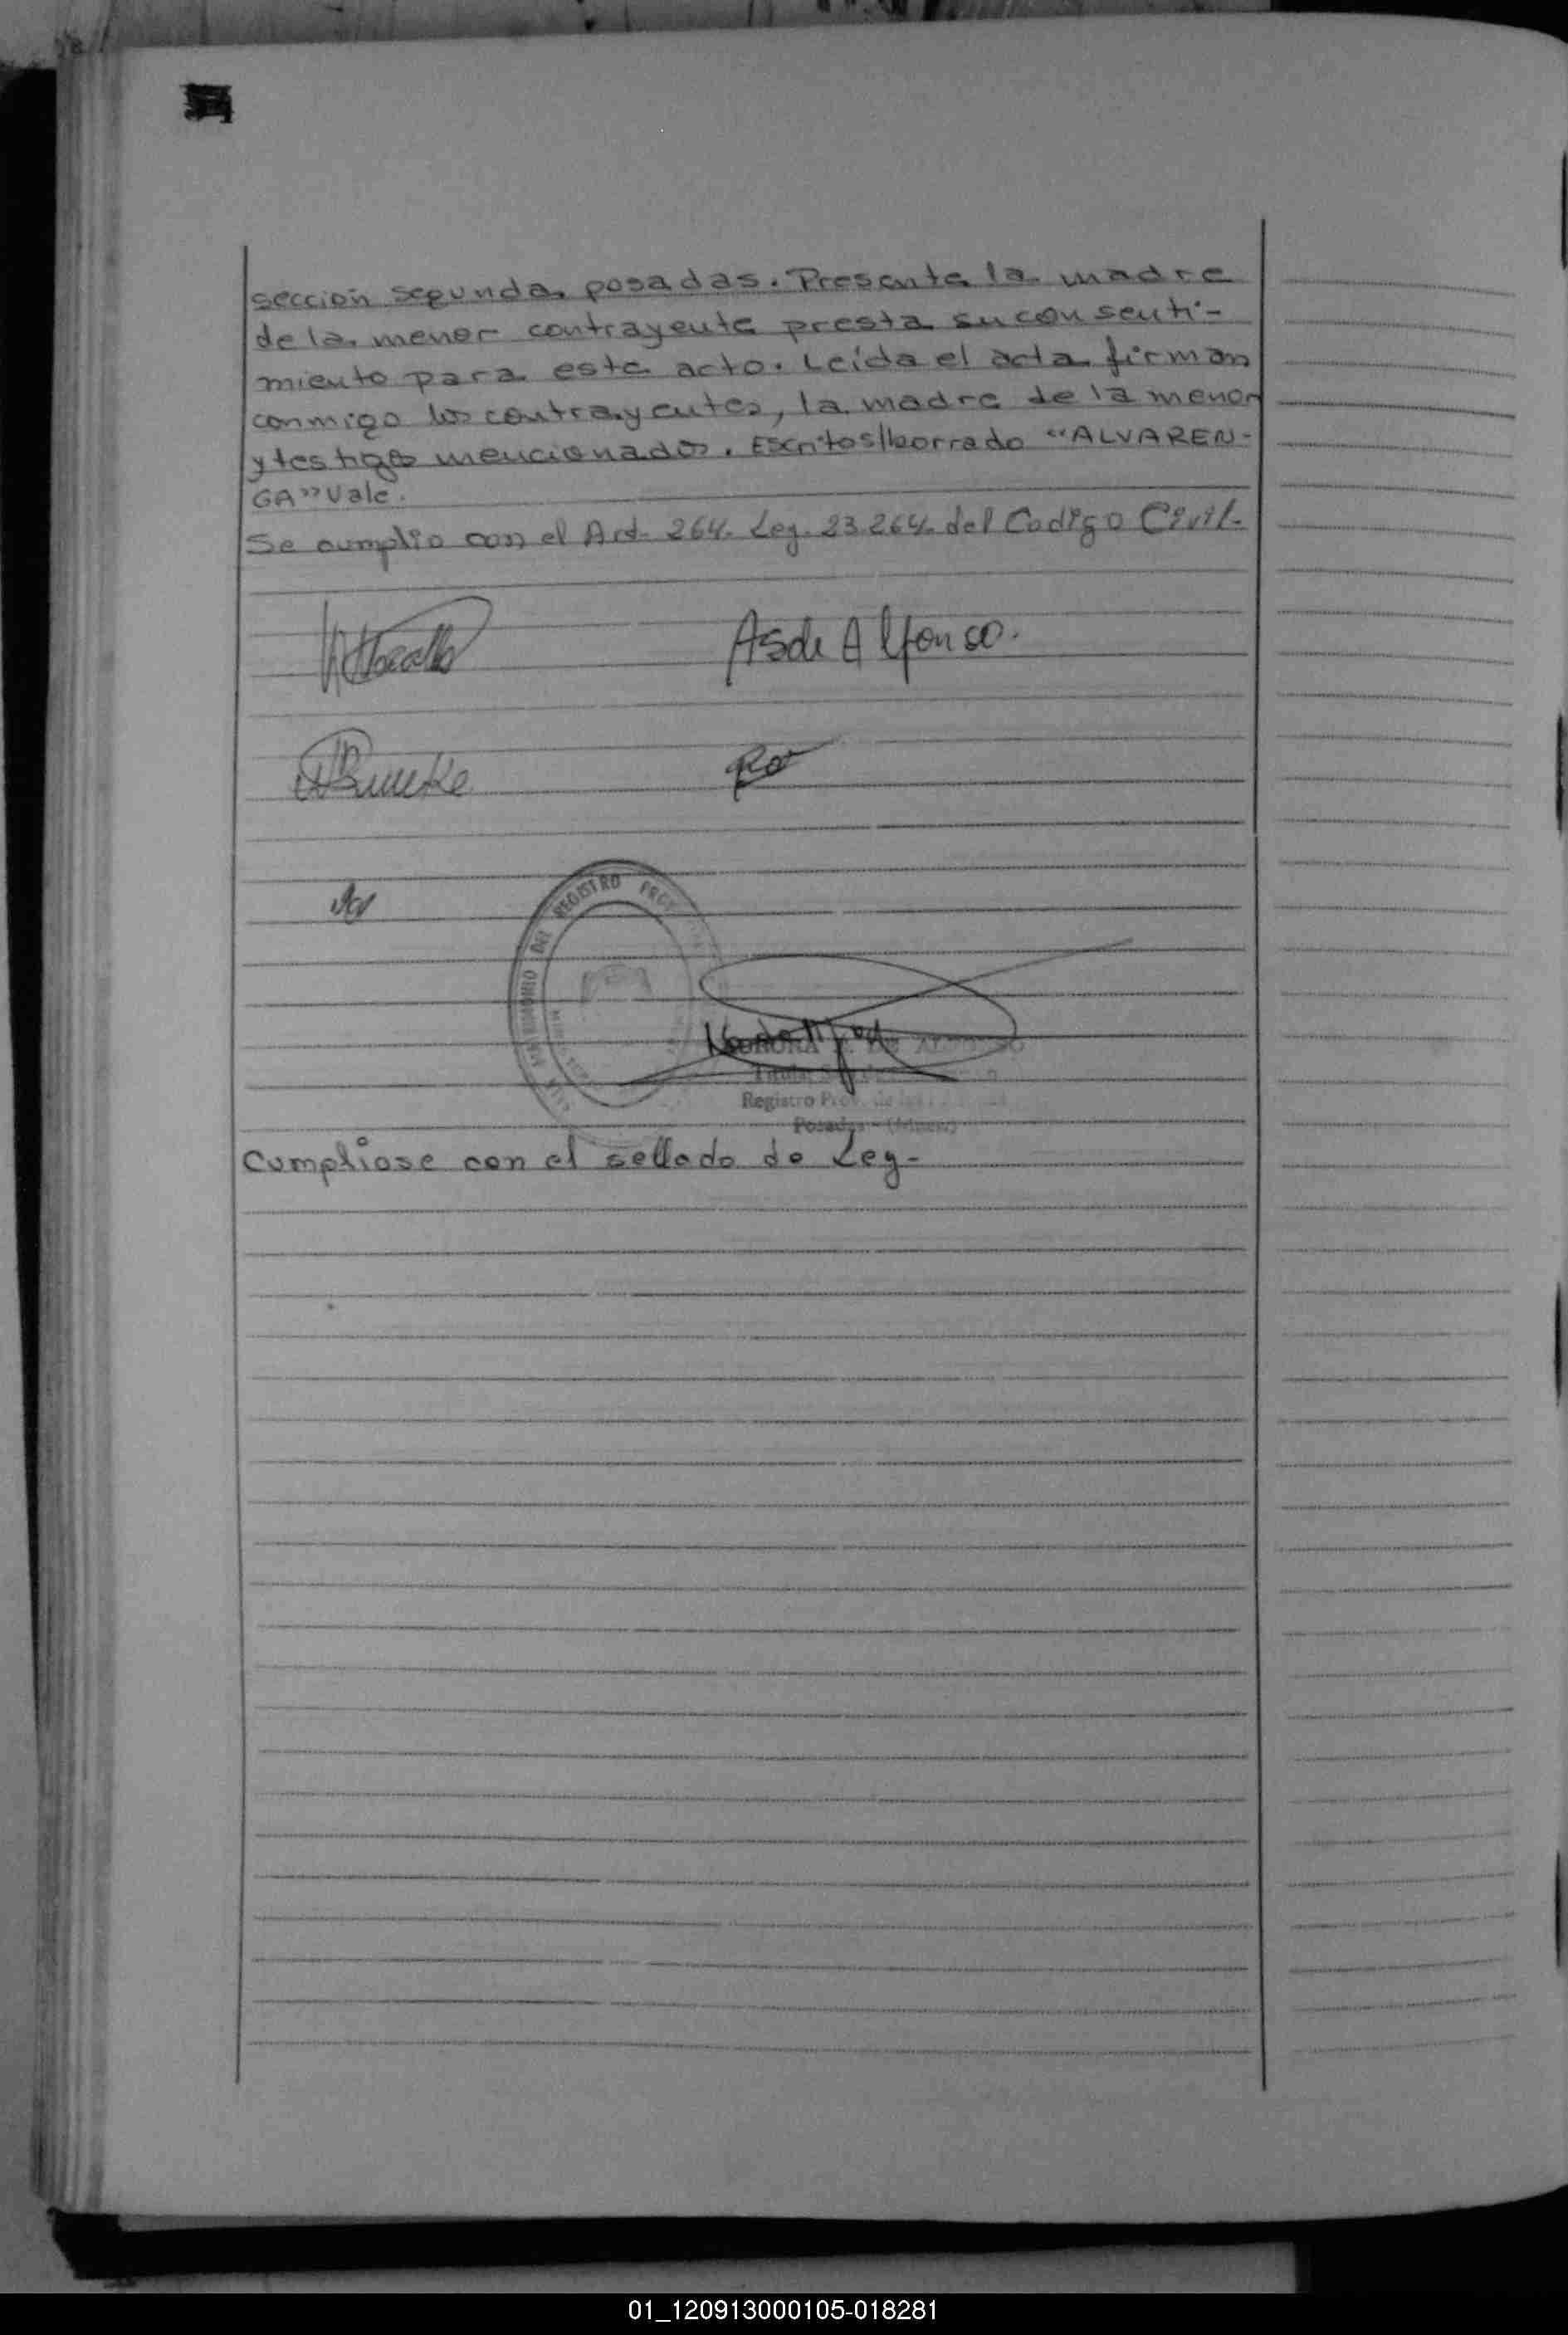 sección segunda, posadas. Presente la madre
de la menor contrayente presta su consenti-
miento para este acto. Leída el acta firman
conmigo los contrayentes, la madre de la menor
y testigos mencionados. Escritos/borrado "ALVAREN-
GA" Vale.
Se cumplio con el Art. 264. Ley. 23.264. del Codigo Civil.
Asde Alfonso.
DEL REGISTRO
Registro
Posadas
Cumpliose con el sellado de Ley-
01_120913000105-018281